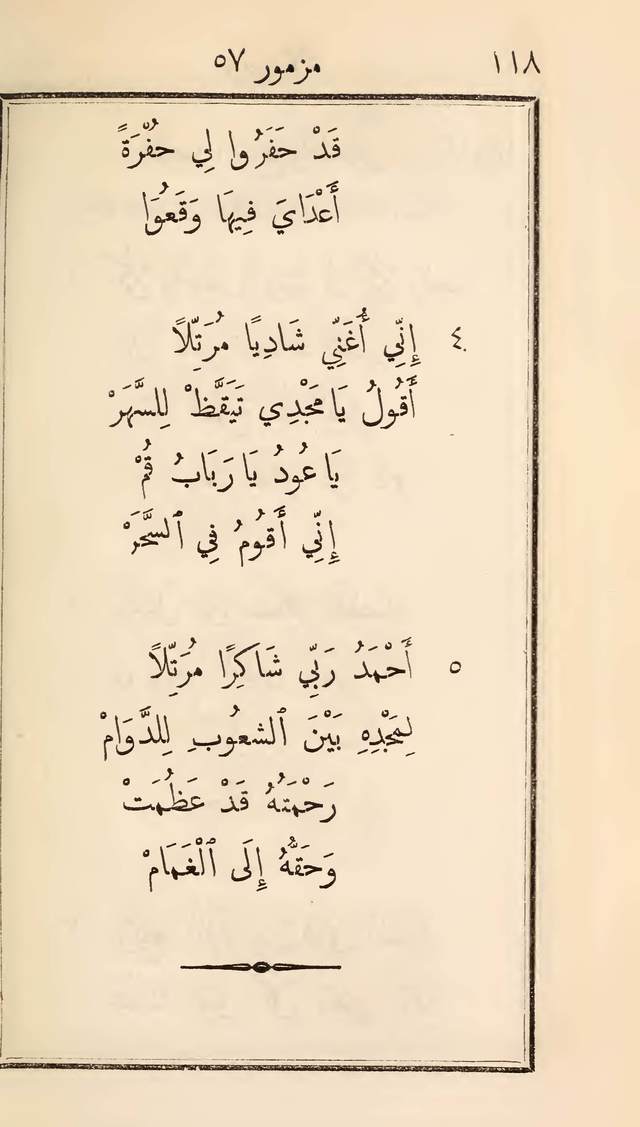 ١١٨ مزمور ٥٧
قَدْ حَفَرُوا لِي حُفْرَةً
أَعْدَايَ فِيهَا وَقَعُوا
٤ إِنِّي أُغَنِّي شَادِيًا مُرَتِّلًا
أَقُولُ يَا مَجْدِي تَيَقَّظْ لِلسَّهَرْ
يَا عُودُ يَا رَبَابُ قُمْ
إِنِّي أَقُومُ فِي ٱلسَّحَرْ
٥ أَحْمَدُ رَبِّي شَاكِرًا مُرَتِّلًا
لِمَجْدِهِ بَيْنَ ٱلشعُوبِ لِلدَّوَامْ
رَحْمَتُهُ قَدْ عَظُمَتْ
وَحَقُّهُ إِلَى ٱلْغَمَامْ